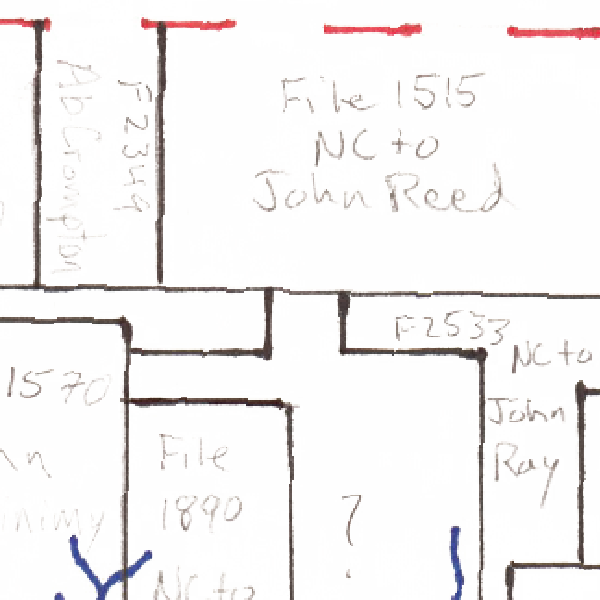 Ab Crompton
F2349
File 1515
NC to
John Reed
F2533
NC to
John
Ray
1570
File
1890
NC to
?